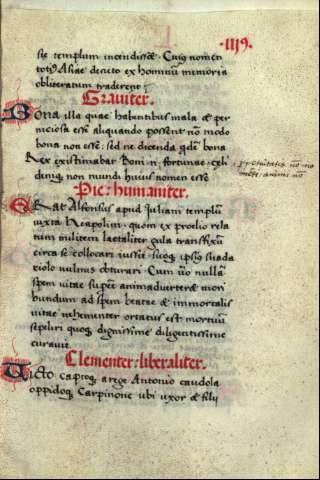 ·1119·
sie templum incendisse. Cuiꝰ nomen
totiꝰ Asiae decreto ex hominum memoria
obliteratum traderent.
Grauiter.
Bona illa quae habentibus mala et per
niciosa esse aliquando possent nō modo
bona non esse: sed ne dicenda qdē bona
Rex existimabat
deniqꝫ non mundi huius nomen esse
Pie: humaniter.
ERat Alfonsus apud Juliani templū
iuxta Neapolim. quom ex proelio rela
tum militem laetaliter gula transfixū
circa se collocari iussit. suoqꝫ ipsiꝰ
vulnus obturari. Cum uō nullā
spem vitae superē animaduerteret mori
bundum ad spem beatae et immortalis
vitae vehementer ortatus est mortuū
sepeliri quoqꝫ dignissime diligentissime
curauit
Clementer: liberaliter.
Uicto captoqꝫ a rege Antonio caudola
oppidoqꝫ Carpinone ubi uxor et filij